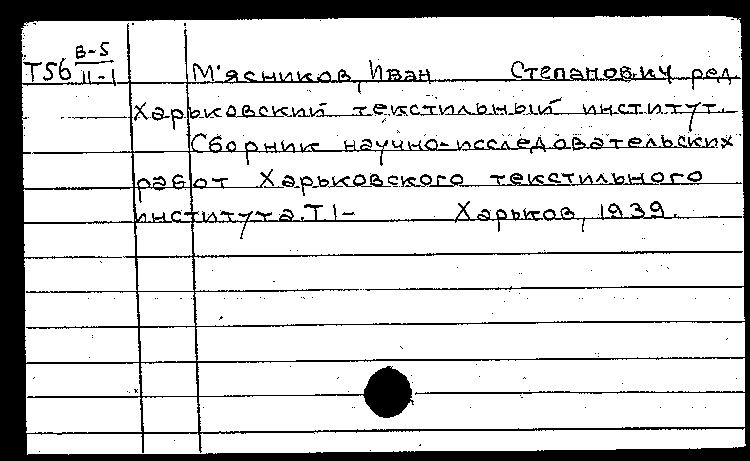 Т56 В-5
II-1
М'ясников, Иван Степанович ред.
Харьковский текстильный институт.
Сборник научно-исследовательских
работ Харьковского текстильного
института. Т. 1- Харьков, 1939.